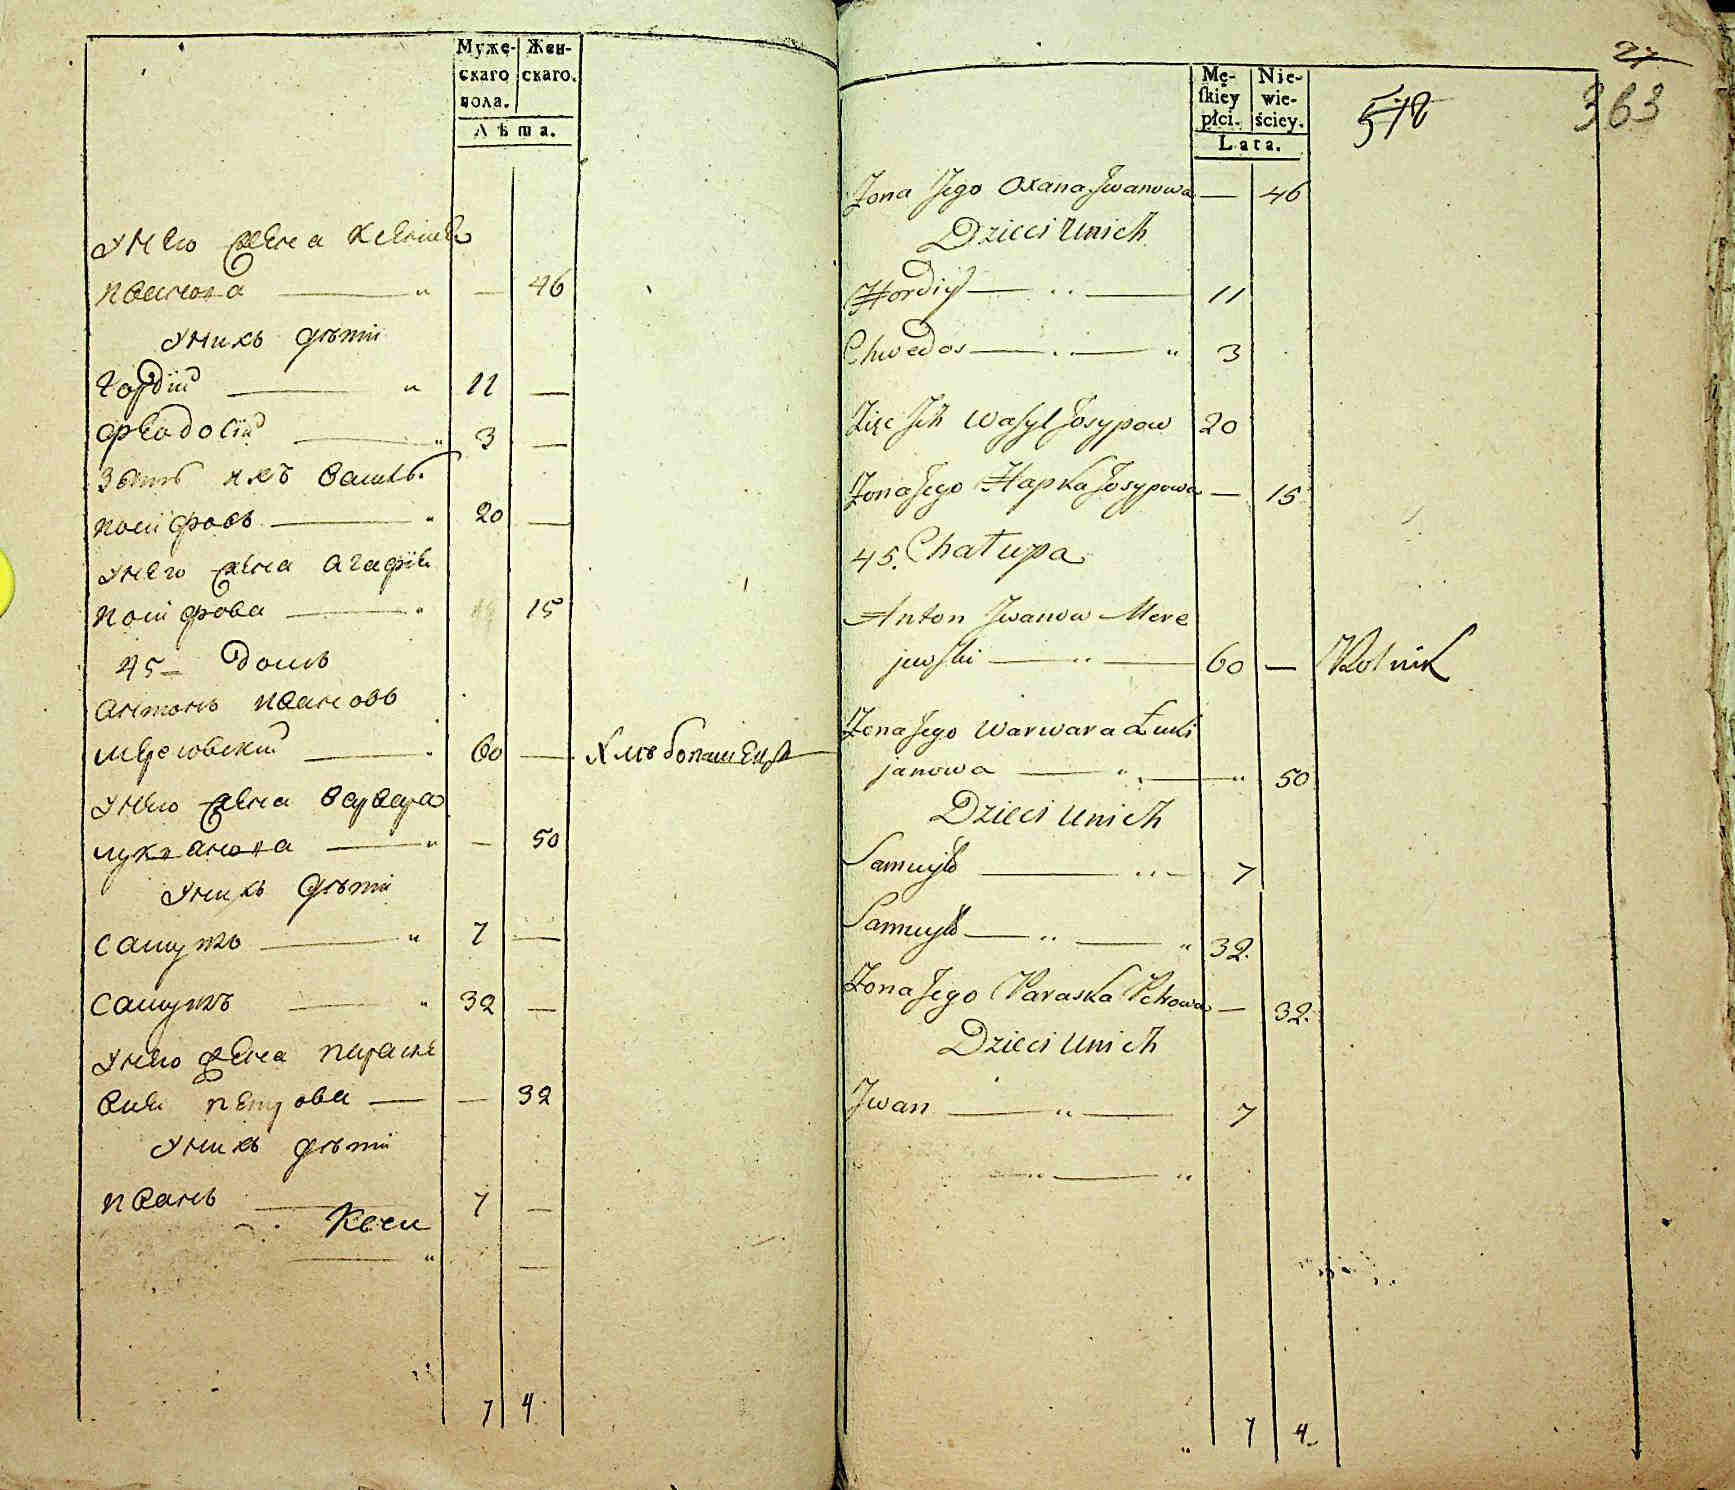 Муже- Жен-
скаго скаго.
пола.
Лѣта.
У него жена Ксения
Иванова — 46
У нихъ дѣти
Гордій 11 —
Феодосій 3 —
Зять ихъ Василь
Иосифовъ 20 —
У него жена Агафія
Иосифова 15
45 — Домъ
Антонъ Ивановъ
Мереювский 60 — Хлѣбопашецъ
У него жена Варвара
Лукянова — 50
У нихъ дѣти
Самуилъ 7 —
Самуилъ 32 —
У него жена Параске
вия Петрова — 32
У нихъ дѣти
Иванъ 7 —
7 4
27
363
578
Mę- Nie-
skiey wie-
płci. ściey.
Lata.
Żona Jego Oxana Jwanowa — 46
Dzieci Unich
Hordiy 11
Chwedos 3
Zięc Jch Wasyl Josypow 20
Żona Jego Hapka Josypowa — 15
45. Chałupa
Anton Jwanow Mere
jewski 60 — Rolnik
Żona Jego Warwara Łuki
janowa 50
Dzieci Unich
Samuyło 7
Samuyło 32.
Żona Jego Paraska Petrowa — 32.
Dzieci Unich
Jwan 7
7 4.